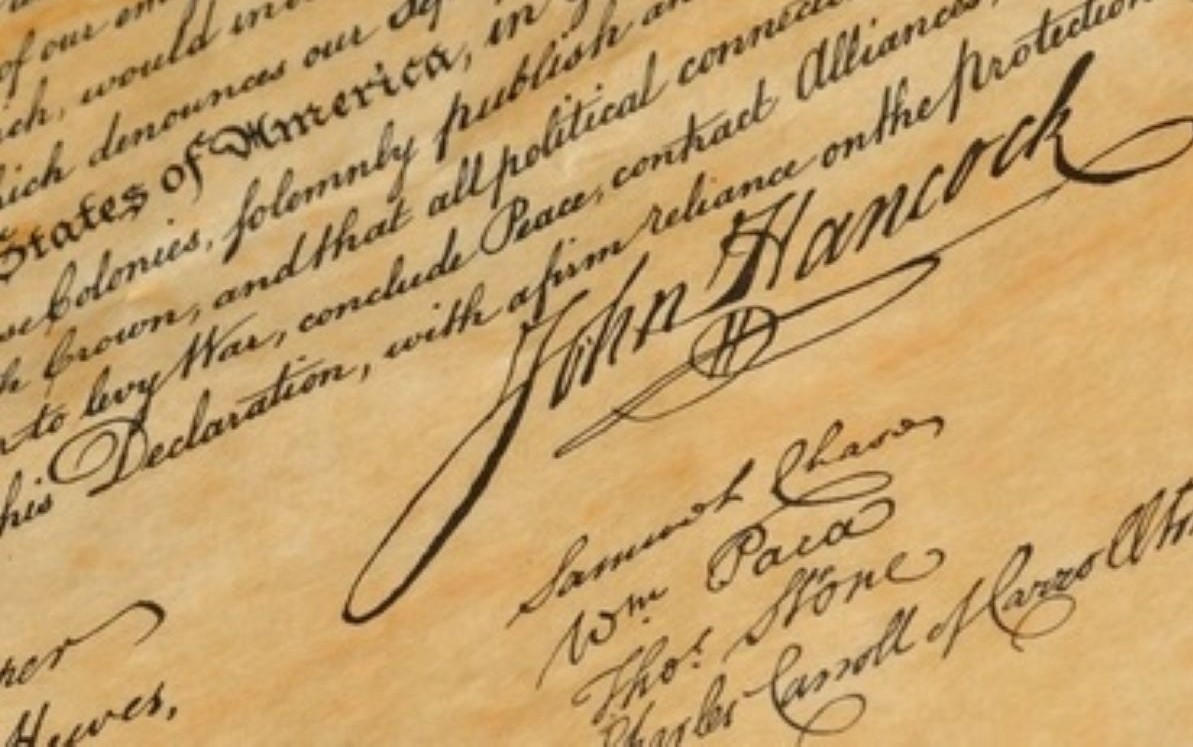 of our em
ch, would in
hich denounces our Se
States of America, in
se Colonies, solemnly publish an
h Crown, and that all political connec
to levy War, conclude Peace, contract Alliances,
his Declaration, with a firm reliance on the protection
John Hancock
Samuel Chase
Wm Paca
Thos. Stone
Charles Carroll of Carrollto
per
Hewes,